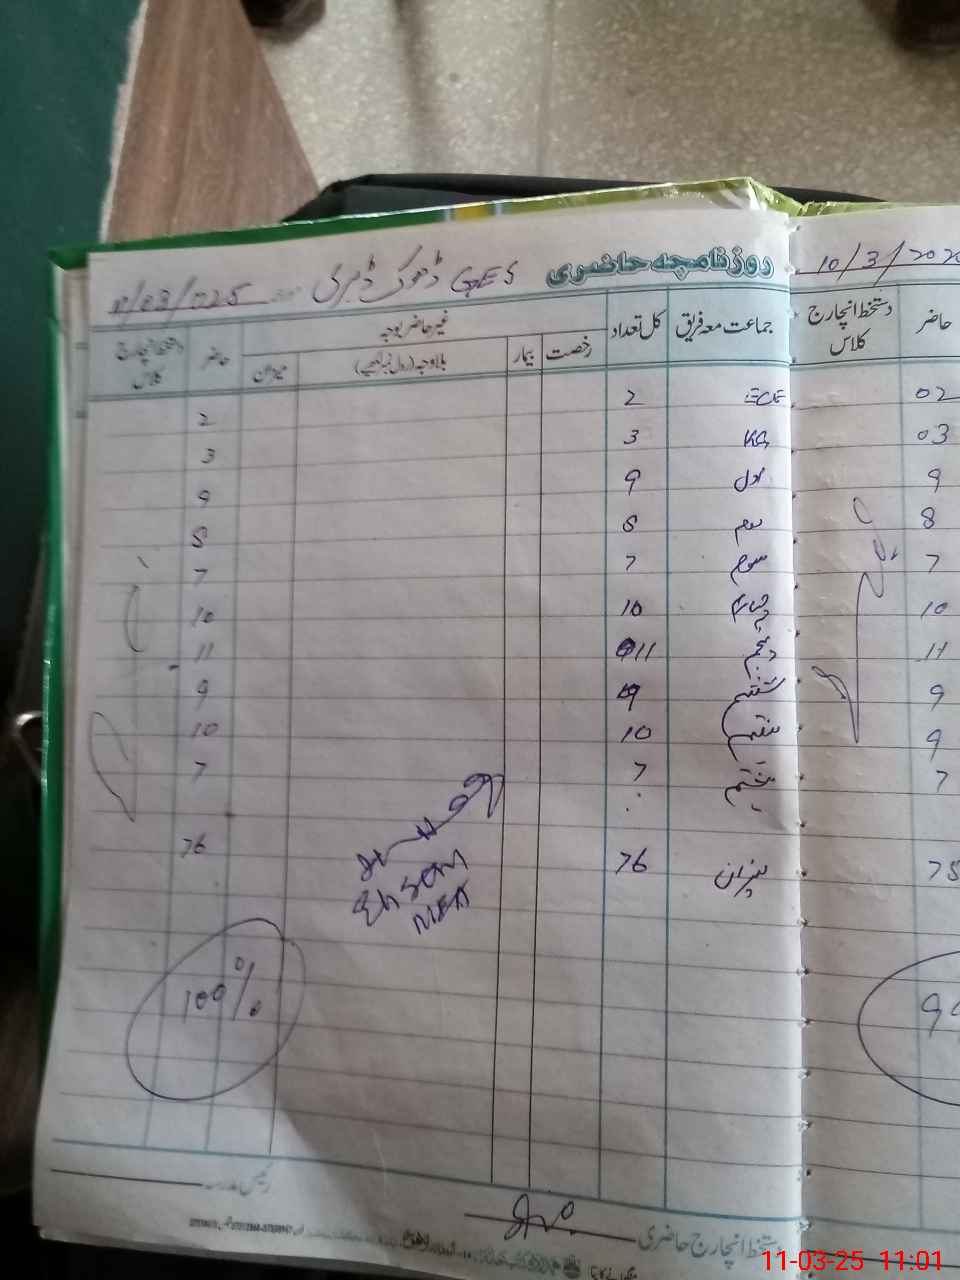 روزنامچہ حاضری GES ڈھوک ڈبری 11/03/025
جماعت معہ فریق کل تعداد غیر حاضر بوجہ حاضر دستخط انچارج کلاس
رخصت بیمار بلاوجہ (رول نمبر لکھیے) میزان
ECE 2 2
KG 3 3
اول 9 9
دوم 8 8
سوم 7 7
چہارم 10 10
پنجم 11 11
ششم 9 9
ہفتم 10 10
ہشتم 7 7
میزان 76 76
MEA
100%
رئیس مدرسہ
دستخط انچارج حاضری
10/3/202
حاضر دستخط انچارج کلاس
02
03
9
8
7
10
11
9
9
7
75
11-03-25 11:01